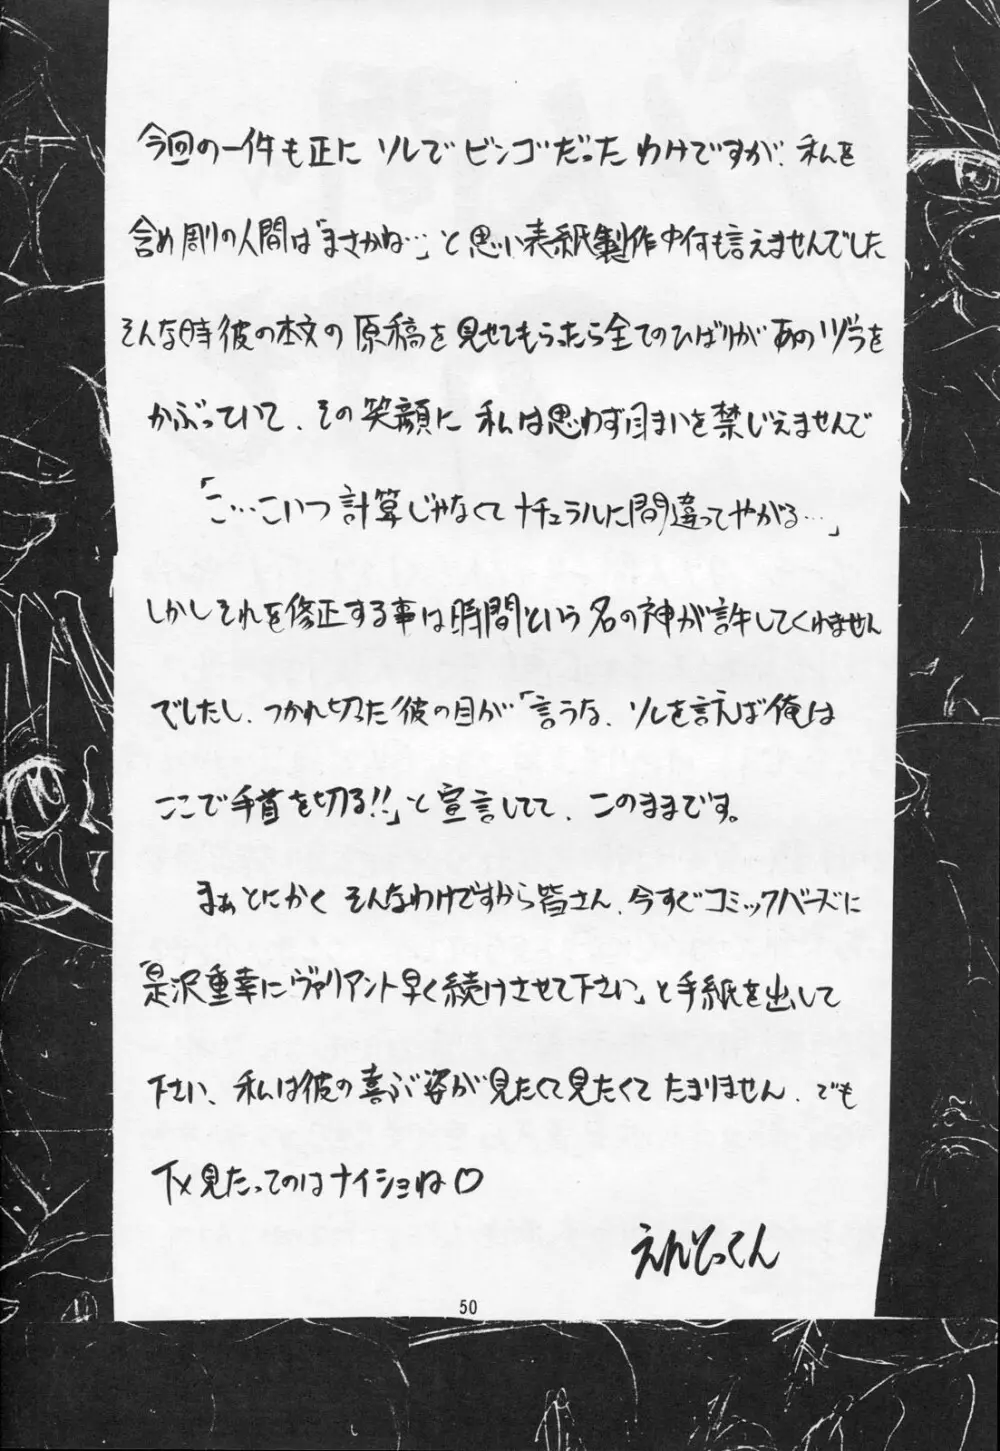 今回の一件も正に ソレで ビンゴだったわけですが、私を
含め周りの人間は「まさかね…」と思い表紙製作中何も言えませんでした
そんな時彼の本文の原稿を見せてもらったら全てのひばりがあのヅラを
かぶっていて、その笑顔に私は思わず目まいを禁じえませんで
「こ…こいつ計算じゃなくてナチュラルに間違ってやがる…」
しかしそれを修正する事は時間という名の神が許してくれません
でしたし、つかれ切った彼の目が「言うな、ソレを言えば俺は
ここで手首を切る!!」と宣言してて、このままです。
まぁとにかく そんなわけですから皆さん、今すぐコミックバーズに
「是沢重幸にヴァリアント早く続けさせて下さい」と手紙を出して
下さい、私は彼の喜ぶ姿が見たくて見たくてたまりません、でも
下メ見たってのはナイショね♡
えんどってん
50